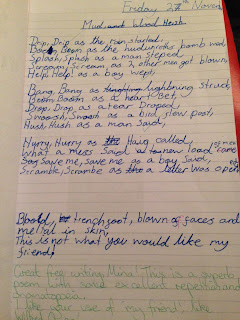 Friday 2 Novem
Mud and Blood Hush
Drip, Drip as the rain started,
Boom, Boom as the hudwights bomb wed,
Splash, Splash as a man steped,
Scream, Scream as an other men got blown,
Help, Help! as a boy wept,
Bang, Bang as lightning struck,
Boom, Boom as a heart Bet,
Drop, Drop as a tear Droped,
Swoosh, Swoosh as a bird slew post,
Hush, Hush as a man Said,
Hurry, Hurry as the called,
What a mess Said, new load came
Save me, save me as a boy Said,
Scramble, Scramble as a letter was open
Blood, trenchfoot, blown of faces and
metal in skin,
This is not what you would like my
friend,
Great free writing, Mina! This is a superb
poem with some excellent repetition and
onomatopoeia.
I like your use of 'my friend', like
Wilfred Owen